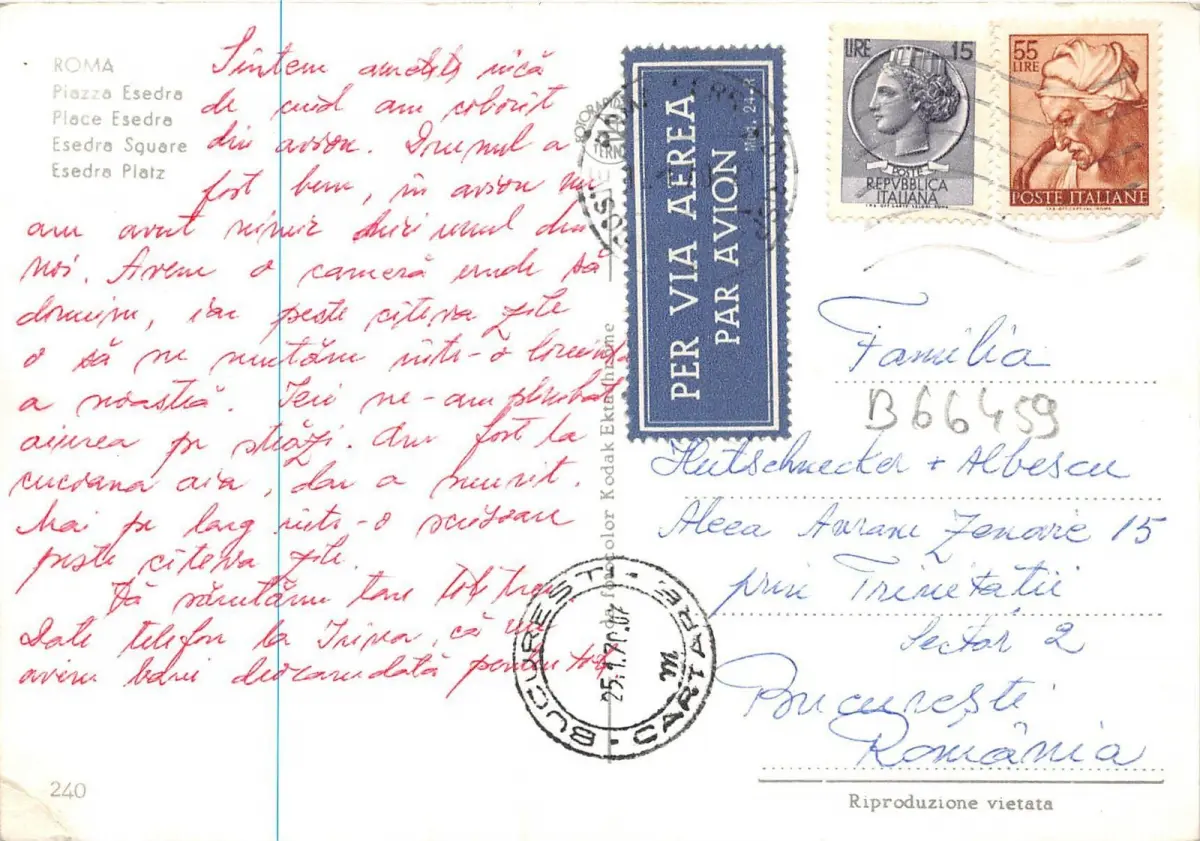 ROMA
Piazza Esedra
Place Esedra
Esedra Square
Esedra Platz
Sîntem amețiți încă
de cînd am coborît
din avion. Drumul a
fost bun, în avion nu
am avut nimic nici unul din
noi. Avem o cameră unde să
dormim, iar peste cîteva zile
o să ne mutăm într-o locuință
a noastră. Ieri ne-am plimbat
aiurea pe străzi. Am fost la
cucoana aia, dar a murit.
Mai pe larg într-o scrisoare
peste cîteva zile.
Vă sărutăm tare toți trei.
Dați telefon la Irina, că nu
avem bani deocamdată pentru toți
240
fotocolor Kodak Ektachrome
PER VIA AEREA
PAR AVION
Mod. 24-R
LIRE 15
POSTE
REPVBBLICA
ITALIANA
55
LIRE
POSTE ITALIANE
Familia
B66459
Hutschnecker + Albescu
Aleea Avram Zenovie 15
prin Trinității
Sector 2
București
România
BUCUREST
CARTARE
25.1.70.07
m
Riproduzione vietata